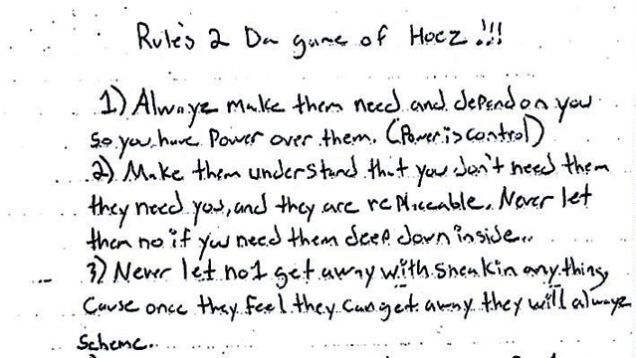 Rule's 2 Da game of Hoez !!!
1) Alwayz make them need and depend on you
so you have Power over them. (Power is control)
2) Make them understand that you don't need them
they need you, and they are replaceable. Never let
them no if you need them deep down inside..
3) Never let no1 get away with sneakin anything,
Cause once they feel they can get away they will alwayz
scheme..